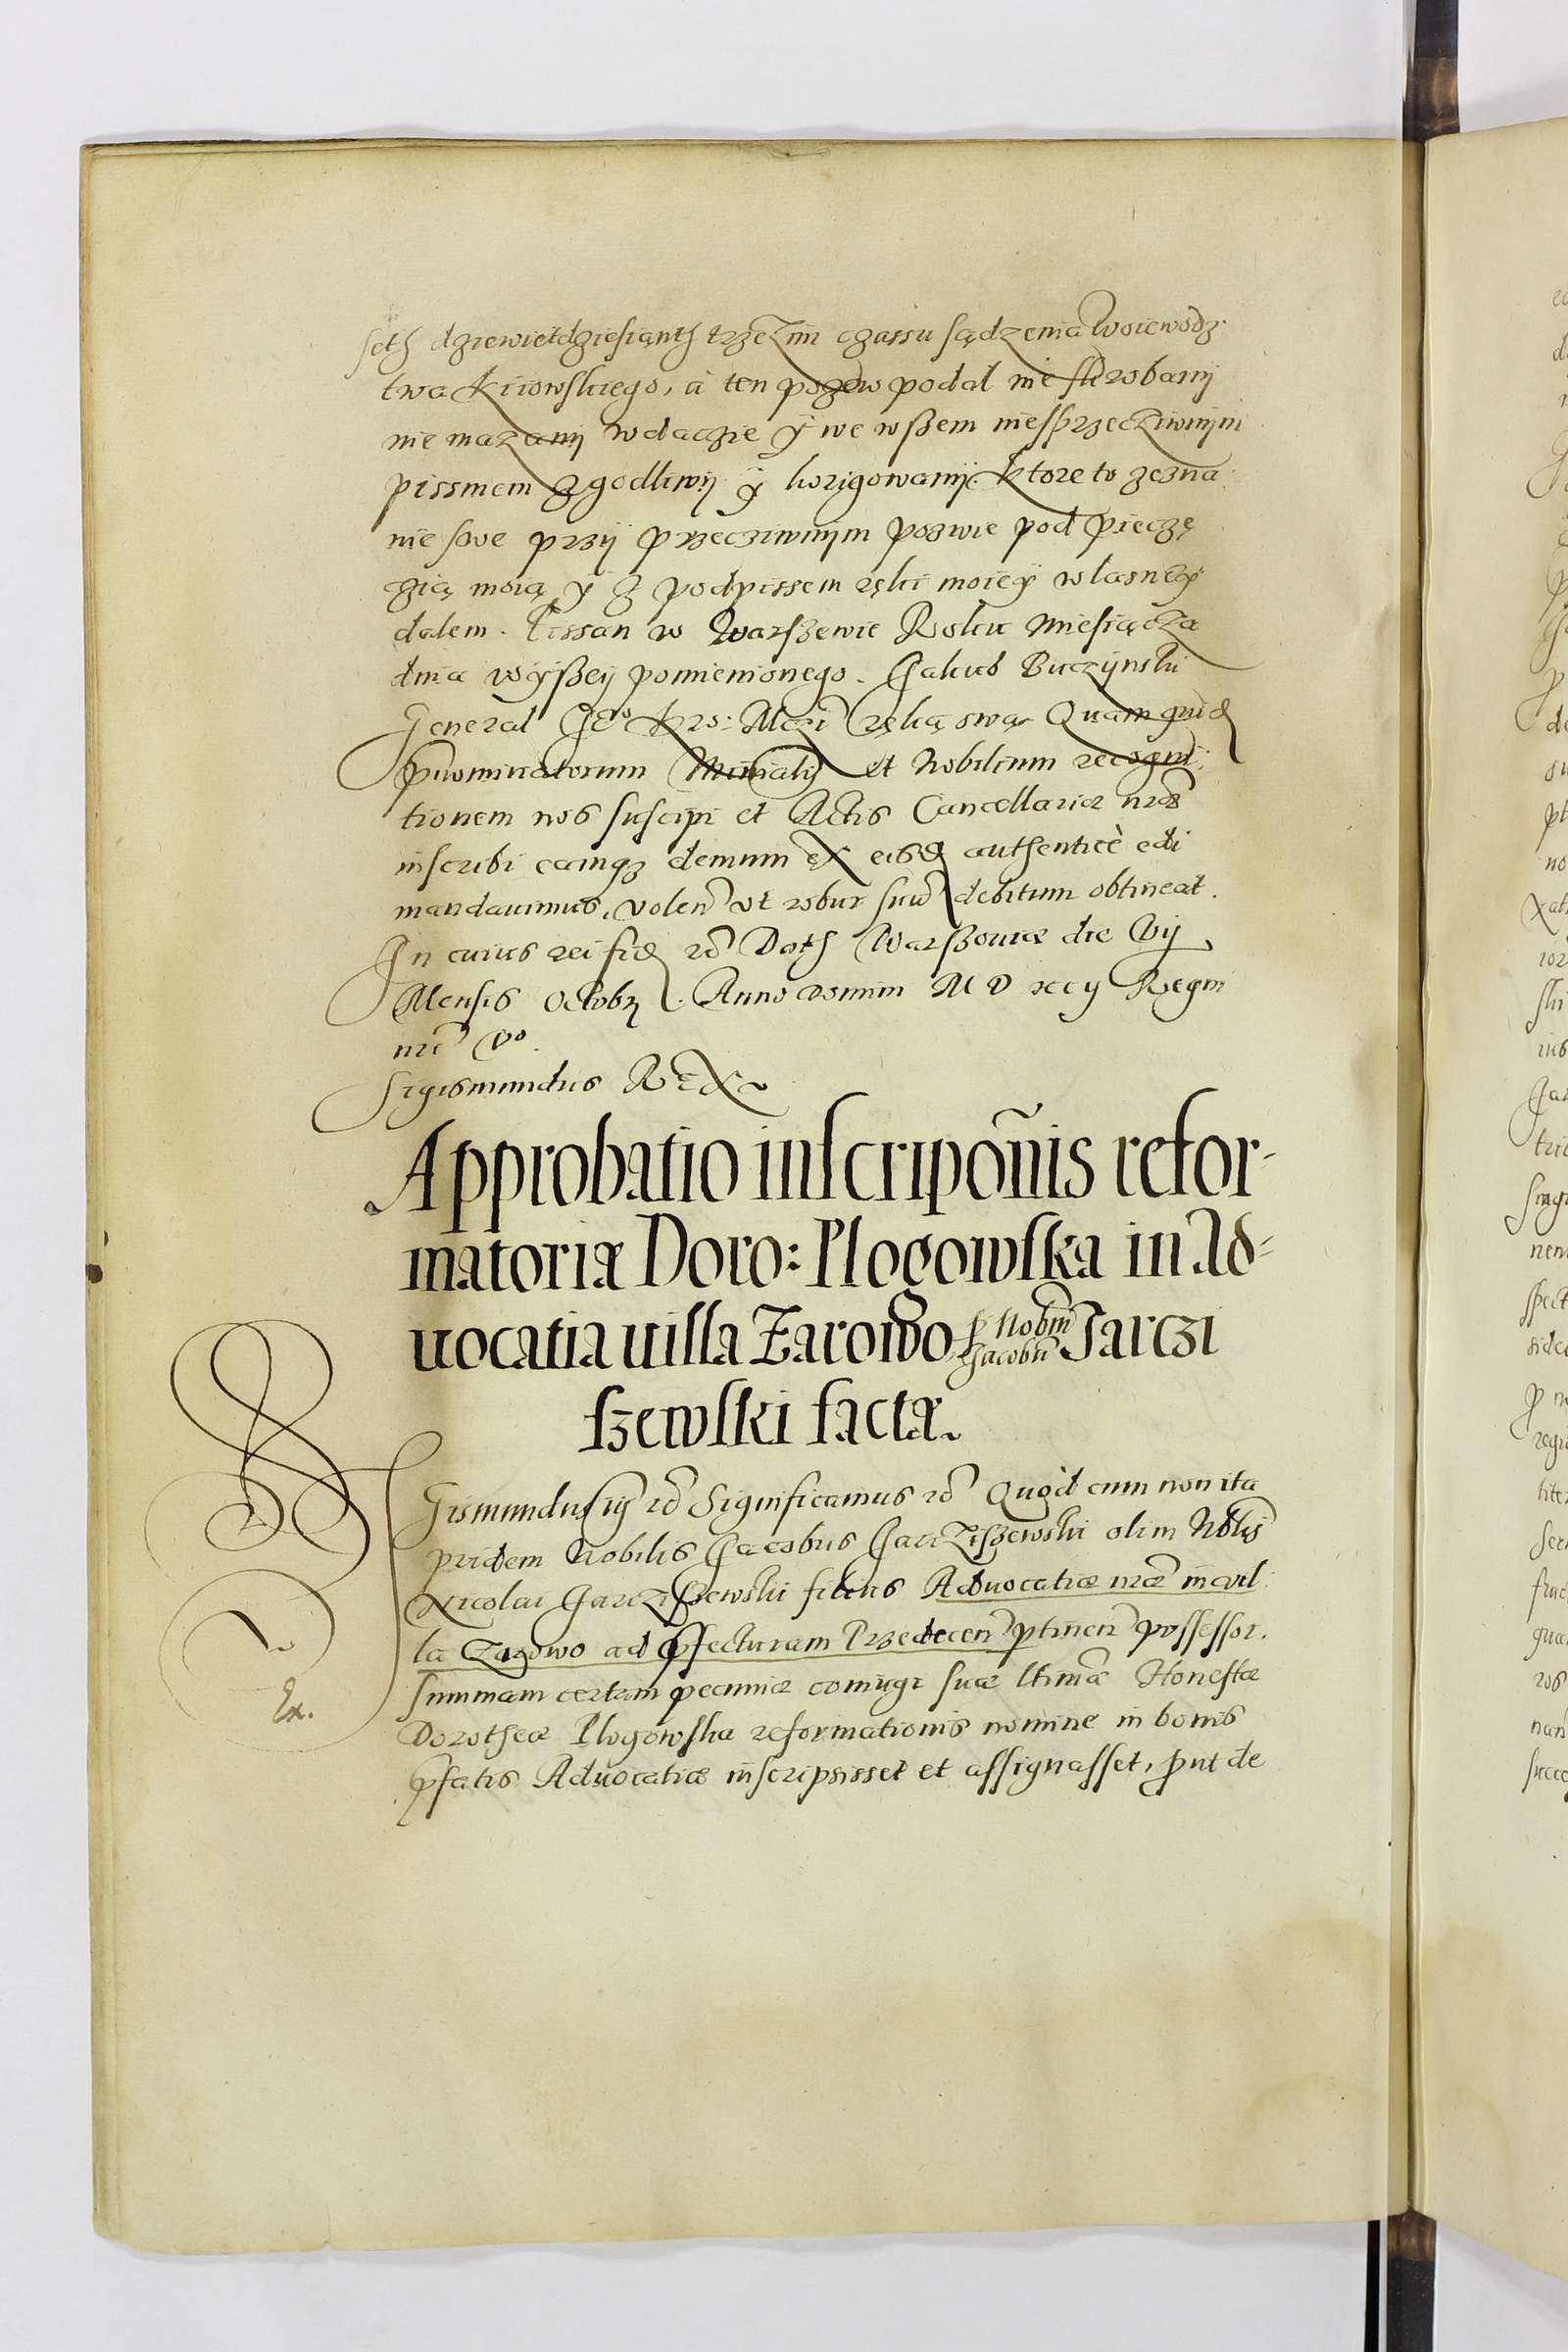 seth dziewiętdziesiąnth trzecim czassu sądzenia Woiewodz
twa Kiiowskiego, a ten pozew podał nie skrobany
nie mazany w dacie y we wßem niesprzecziwnym
pissmem zgodliwy y korigowany. Ktore to zezna
nie swe przy przecziwnym pozwie pod pieczę
czią moią y z podpissem ręki moiey własney
dałem. Pissan w Warszewie Roku Miesiącza
dnia wyßey pomienionego. Jakub Buczynski
General Je° Kro: Mczi ręką swą Quam quid
prnominatorum Mnialis et Nobilium recogni
tionem nos suscipi et Actis Cancellariæ nræ
inscribi eamq demum ex eisd authenticè edi
mandauimus, volen vt robur suu debitum obtineat.
In cuius rei fid rc Dath Warßouiæ die vij
Mensis octobr. Anno domini M D xc ij Regni
nri v°.
Sigismundus Rex
Approbatio inscriponis refor-
matoriæ Doro: Plogowska in Ad-
uocatia uilla Zarowo p Nobm Jacobu Jarczi
szewski factæ.
Gismundus iij rc Significamus rc Quòd cum non ita
pridem Nobilis Jacobus Jarcziszewski olim Nobilis
Nicolai Jarcziszewski filius Aduocatiæ nræ in vil
la Zarowo ad præfecturam Przedecen ptinen possessor.
summam certam pecuniæ coniugi suæ ltimæ Honestæ
Dorotheæ Plogowska reformationis nomine in bonis
pfatis Aduocatiæ inscripsisset et assignasset, put de
Ex.